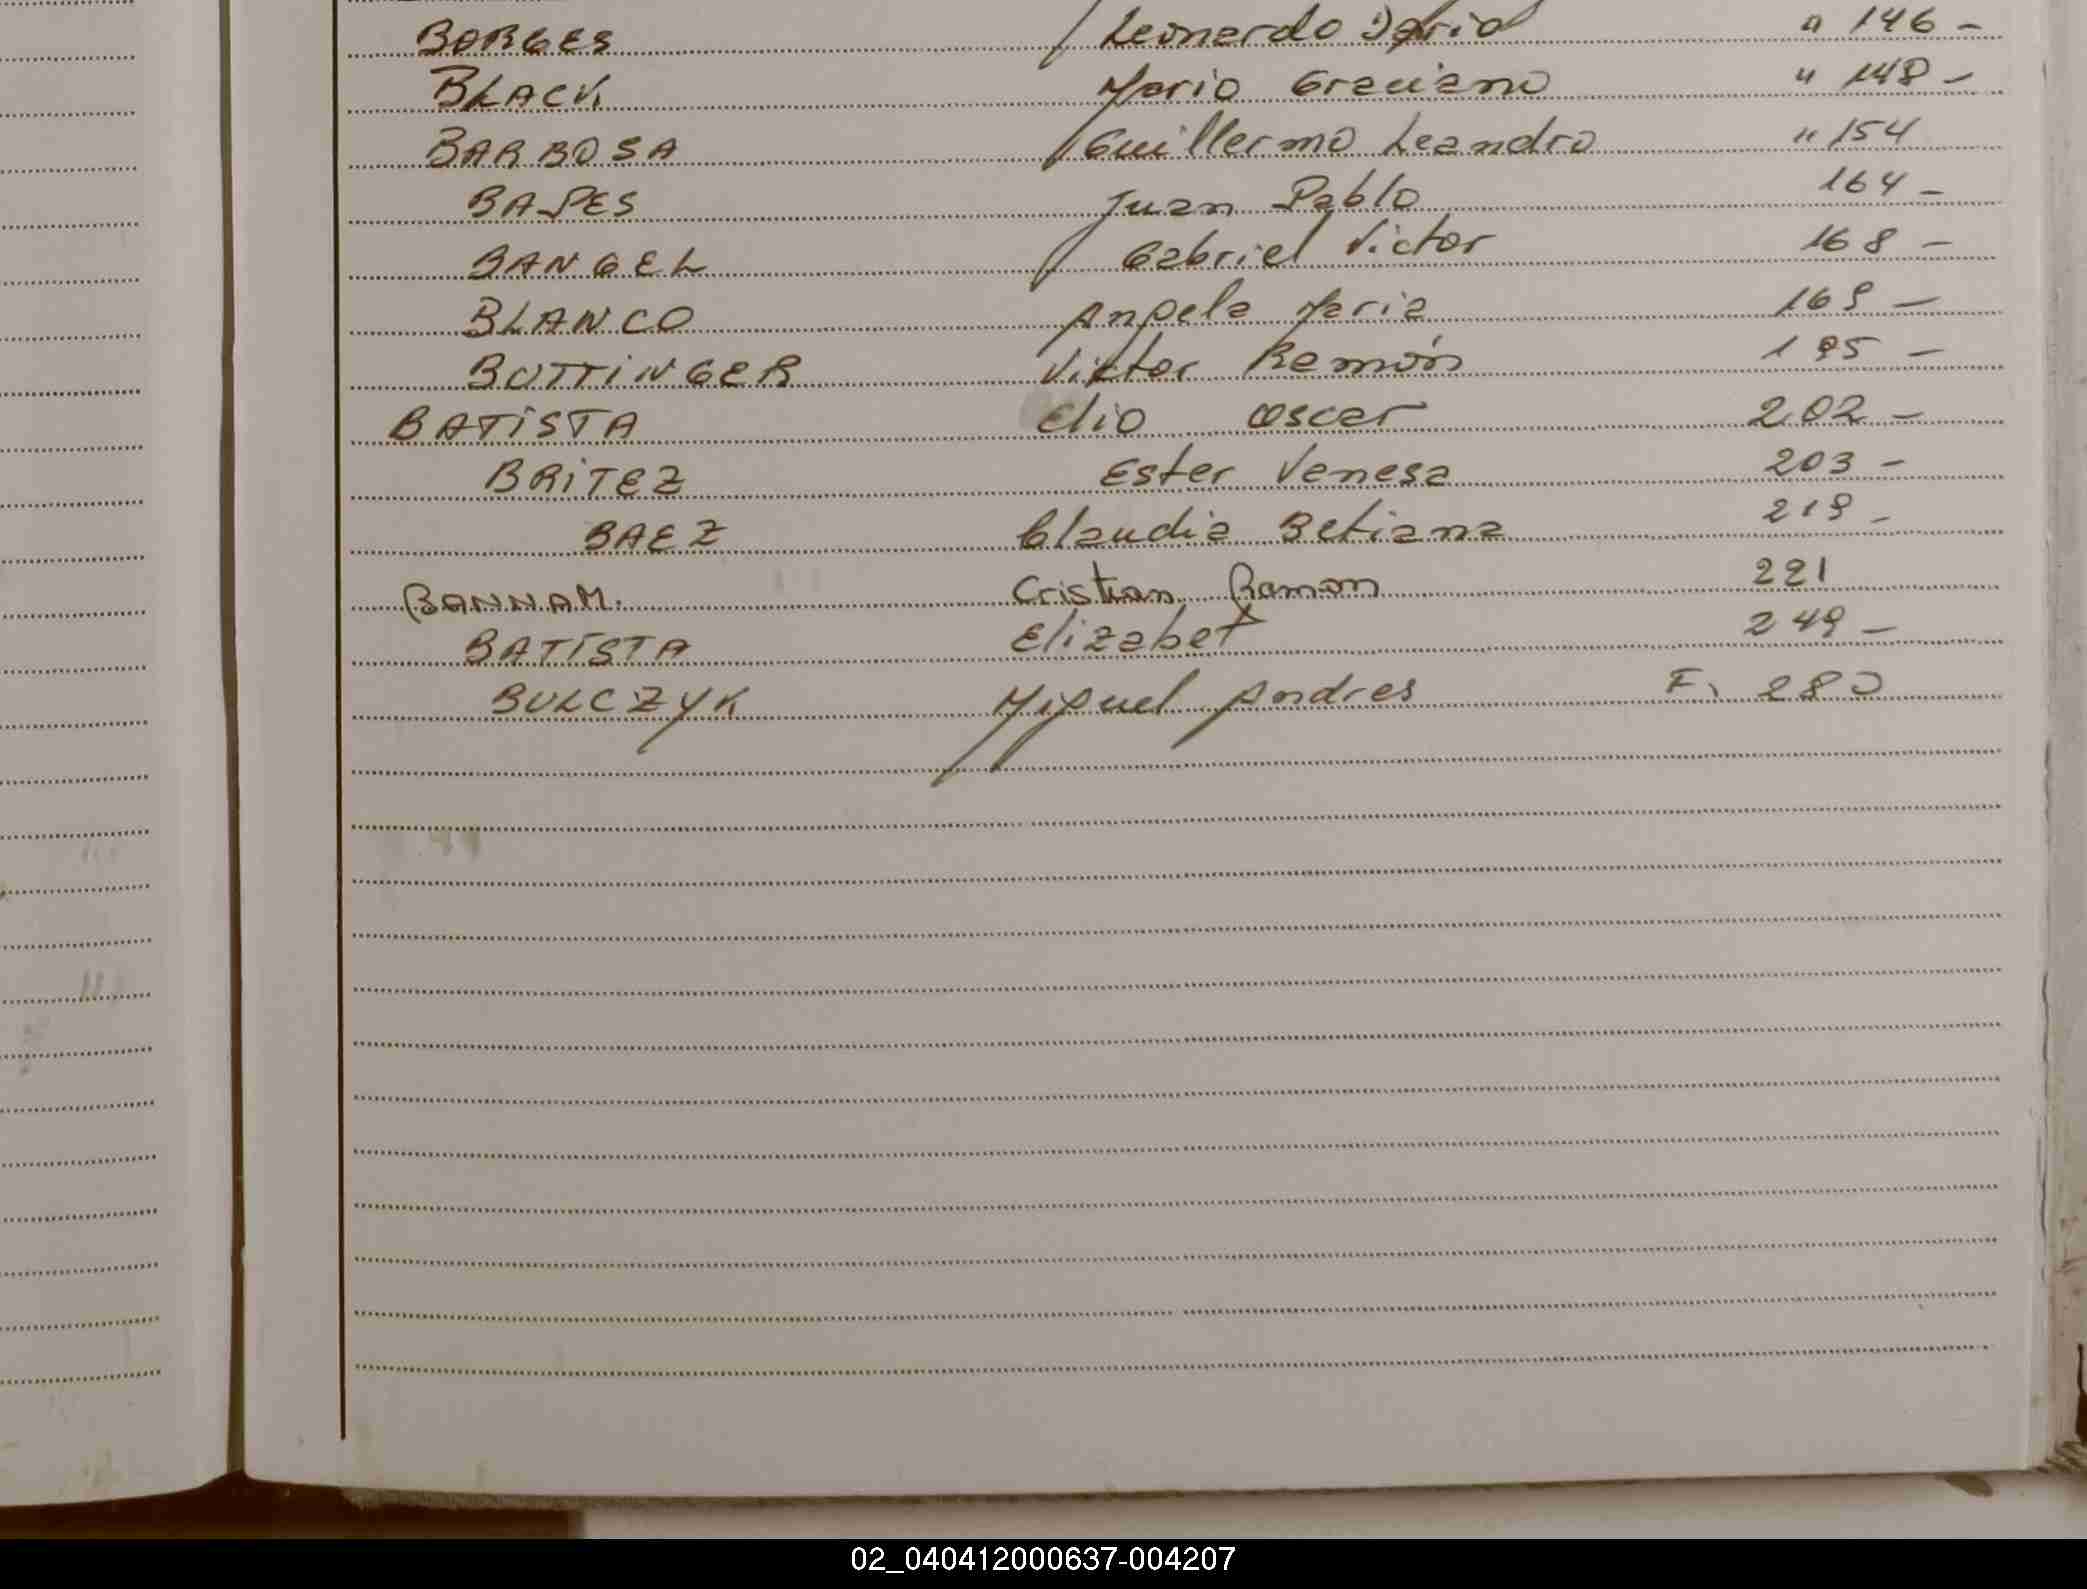 BORGES Leonardo Dario " 146 -
BLACK Mario Graciano " 148 -
BARBOSA Guillermo Leandro " 154
BAPES Juan Pablo 164 -
BANGEL Gabriel Victor 168 -
BLANCO Angela Maria 169 -
BOTTINGER Victor Ramón 195 -
BATISTA Elio Oscar 202 -
BRITEZ Ester Vanesa 203 -
BAEZ Claudia Betiana 219 -
BANNAM. Cristian Ramon 221
BATISTA Elizabet 249 -
BULCZYK Miguel Andres F. 280
02_040412000637-004207